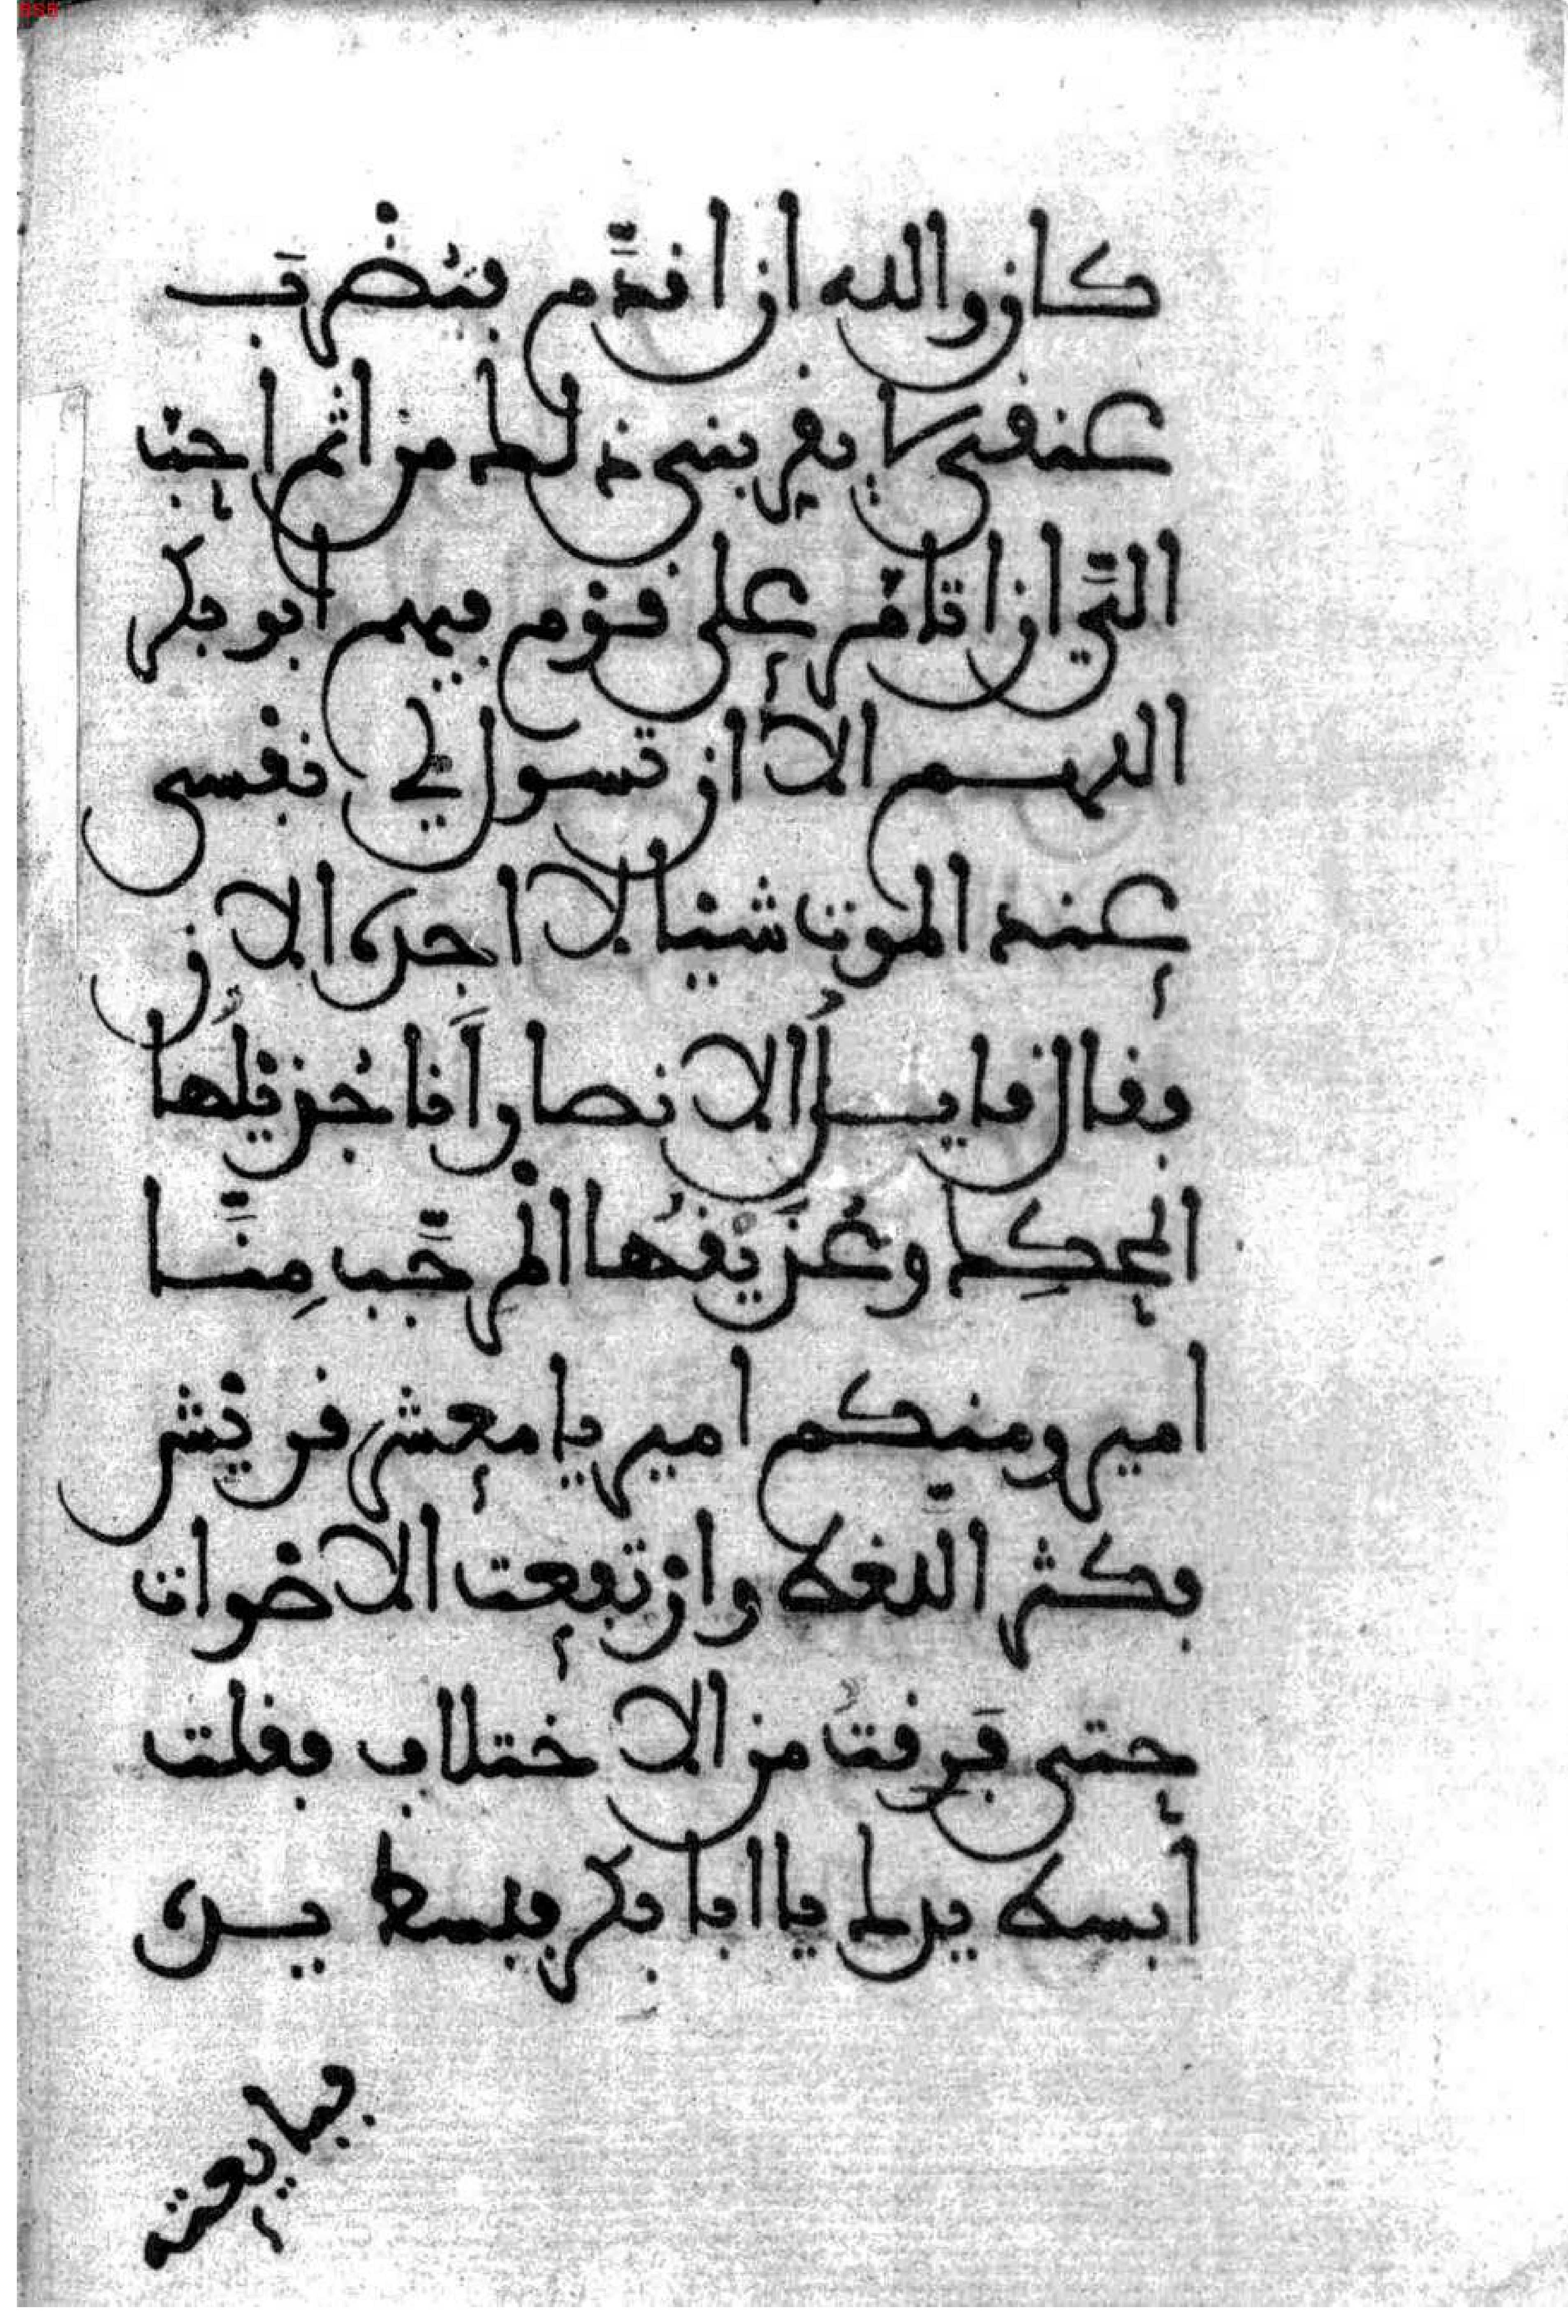 كان والله ان اقدّم فتُضْرَبَ
عنقي لا يقربني ذلك من اثم احبّ
الىَّ ان اتأمّر على قوْم فيهم ابو بكر
اللهم الا ان تسوّل لي نفسي
عند الموت شيئا لا اجده الان
فقال قايل الانصار أنا جُذيْلُها
المحكك وعُذَيْقُها المرجَّب مِنَّا
امير ومنكم امير يا معشر قريْش
فكثر اللّغط وارْتفعت الاصْوات
حتى فَرِقتُ من الاختلاف فقلت
أبسط يدك يا ابا بكر فبسط يده
فبايعته